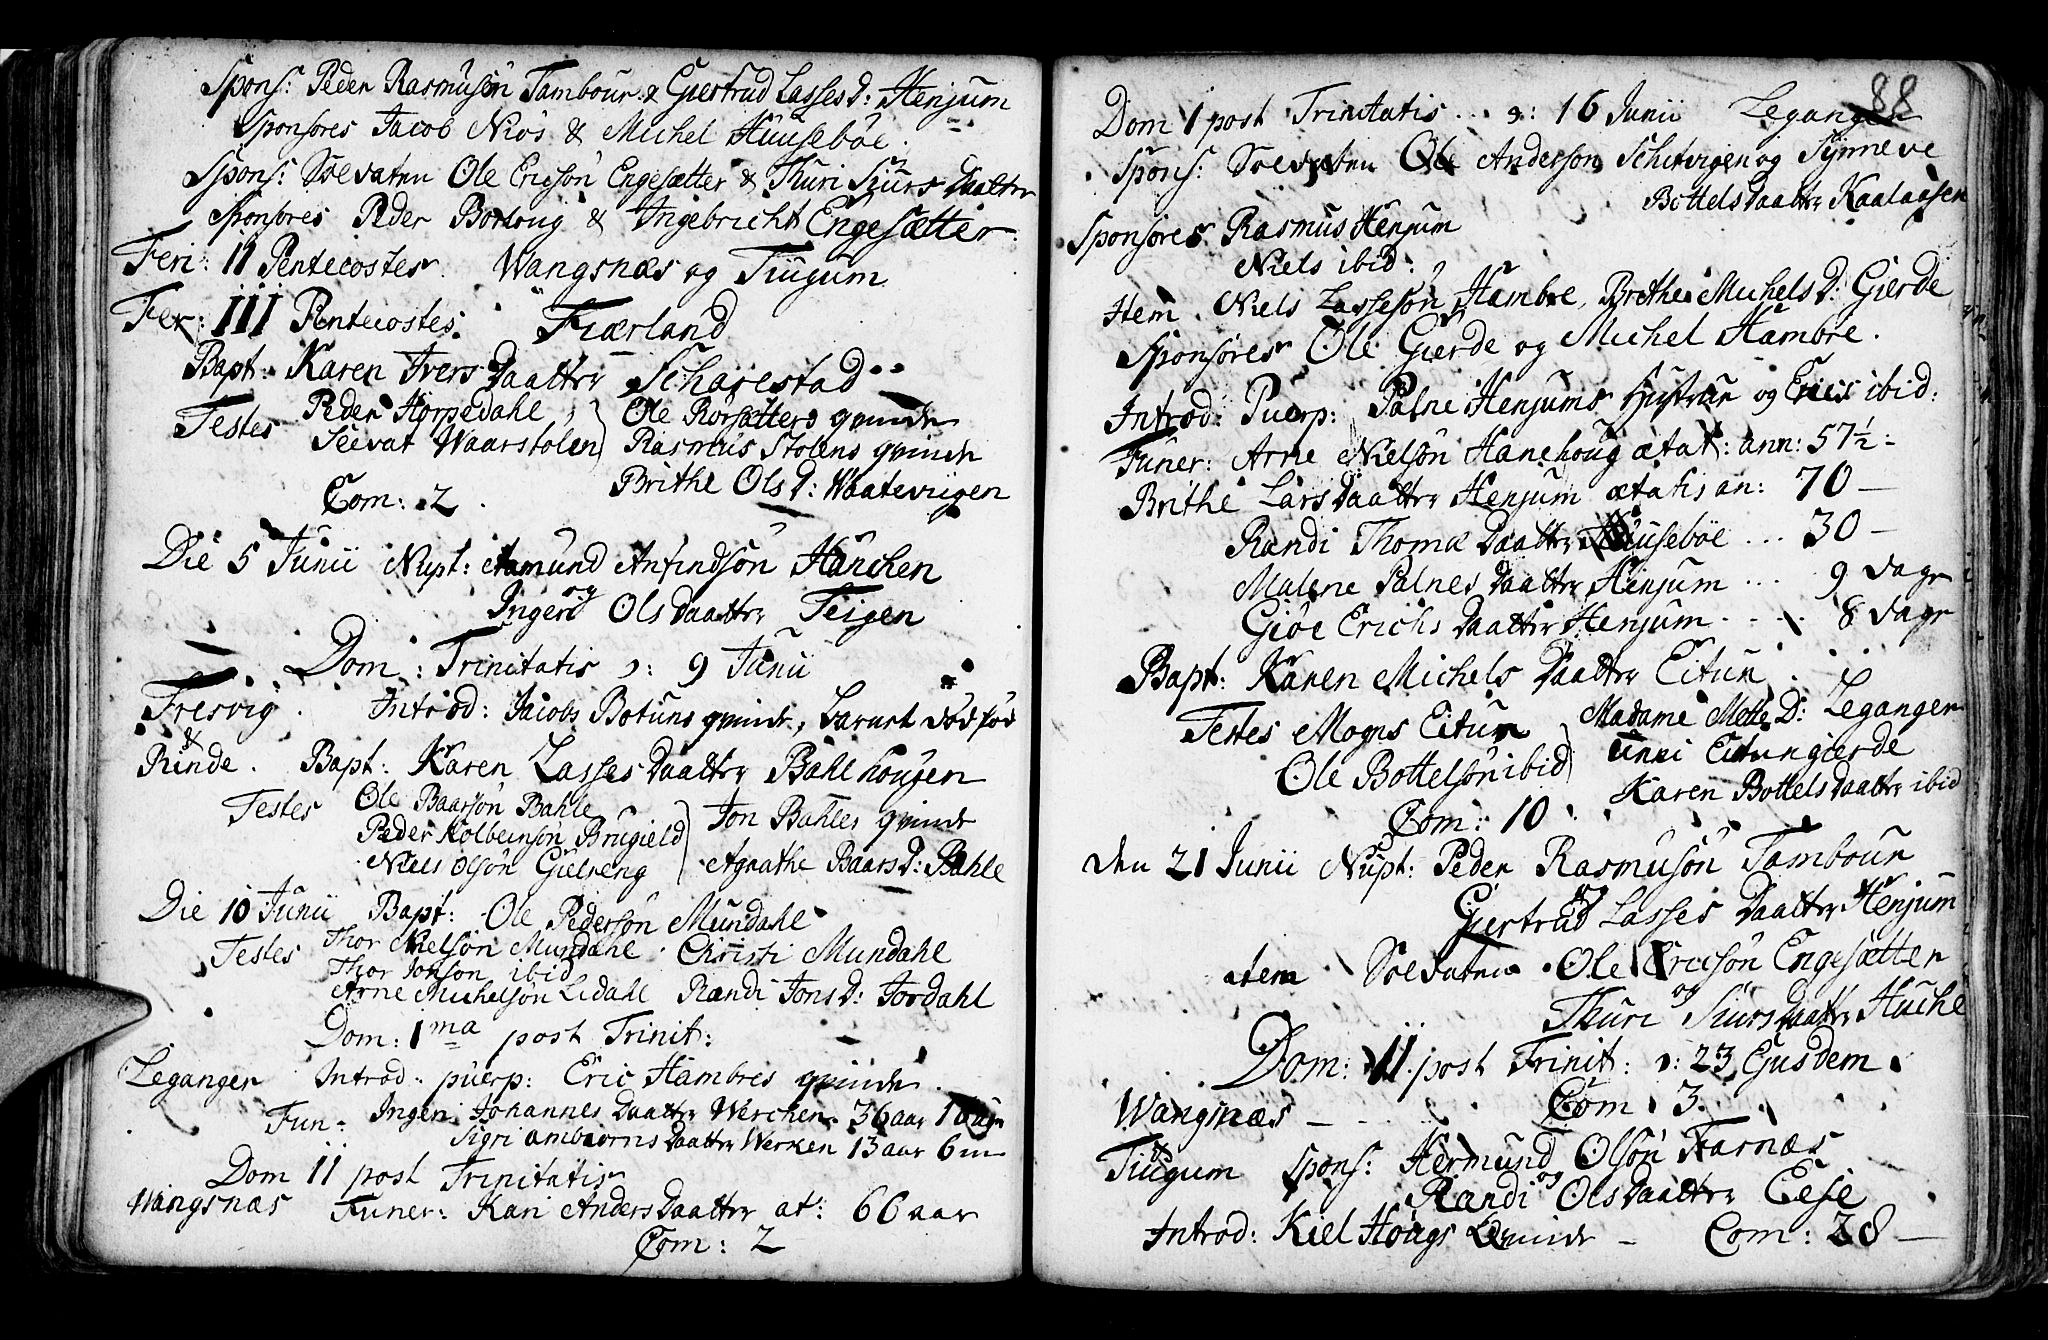 Spons: Peder Rasmusøn Tambour & Giertrud Lasses D: Henjum
Sponsores Jacob Niøs & Michel Huusebøe.
Spons: Soldaten Ole Ericsøn Engesætter & Thuri Siurs Daatter
Sponsores Peder Borloug & Ingebricht Engesætter.
Feri: II Pentecostes. Wangsnæs og Tiugum
Fer: III Pentecostes. Fiærland
Bapt: Karen Ivers Daatter Scharestad
Testes Peder Horpedahl, Ole Rorsætters qvinde
Sievat Waarstolen Rasmus Stolens qvinde
Brithe Ols D: Waatevigen
Com: 2.
Die 5 Junii Nupt: Aamund Anfindsøn Hünchen
og
Ingeri Ols Daatter Teigen
Dom: Trinitatis ɔ: 9 Junii
Fresvig. Introd: Jacobs Botuns qvinde, barnet dødfød
&
Rinde. Bapt: Karen Lasses Daatter Bahlhougen
Testes Ole Baarsøn Bahle
Peder Kolbeinsøn Brugield Jon Bahles qvinde
Niels Olsøn Gielreng Agnathe Baars D: Bahle
Die 10 Junii Bapt: Ole Pedersøn Mundahl
Testes Thor Nielsøn Mundahl. Christi Mundahl
Thor Jonson ibid
Arne Michelsøn Lidahl Randi Jons D: Jordahl
Dom: 1ma post Trinit:
Leganger Introd: puerp: Eric Hambres qvinde.
Fun: Ingeri Johannes Daatter Werchen 36 aar
Sigri ambiorns Daatter Werken 13 aar 6 m
Dom II post Trinitatis
Wangsnæs Funer: Kari Anders Daatter æt: 66 aar
Com: 2
88
Dom 1 post Trinitatis .. ɔ: 16 Junii Leganger
Spons: Soldaten Ole Anderson Schitvigen og Synneve
Bottels Daatter Kaalaasen
Sponsores Rasmus Henjum
Niels ibid:
Item. Niels Lassesøn Hambre, Brithe Michels D: Gierde
Sponsores Ole Gierde og Michel Hambre.
Introd: Puerp: Palne Henjums Hustrue og Erics ibid:
Funer: Arne Nielsøn Hanehoug ætat: ann: 57½:
Brithe Lars Daatter Henjum ætatis an: 70 —
Randi Thomæ Daatter Huusebøe ... 30 —
Malene Palnes Daatter Henjum .... 9 dage
Giøe Erichs Daatter Henjum .... 8 dage
Bapt: Karen Michels Daatter Eitun
Testes Mogns Eitun Madame Mette D: Leganger
Ole Bottelsøn ibid Unni Eitungierde
Karen Bottels Daatter ibid
Com: 10.
den 21 Junii Nupt: Peder Rasmusøn Tambour
og
Giertrud Lasses Daatter Henjum
item Soldaten Ole Ericsøn Engesætter
og
Thuri Siurs Daatter Huche
Dom: II post Trinit: ɔ: 23 Ejusdem.
Wangsnæs — Com. 3.
Tiugum Spons: Hermund Olsøn Farnæs
og
Randi Ols Daatter Eese
Introd: Kiel Hougs Qvinde — Com: 28 —